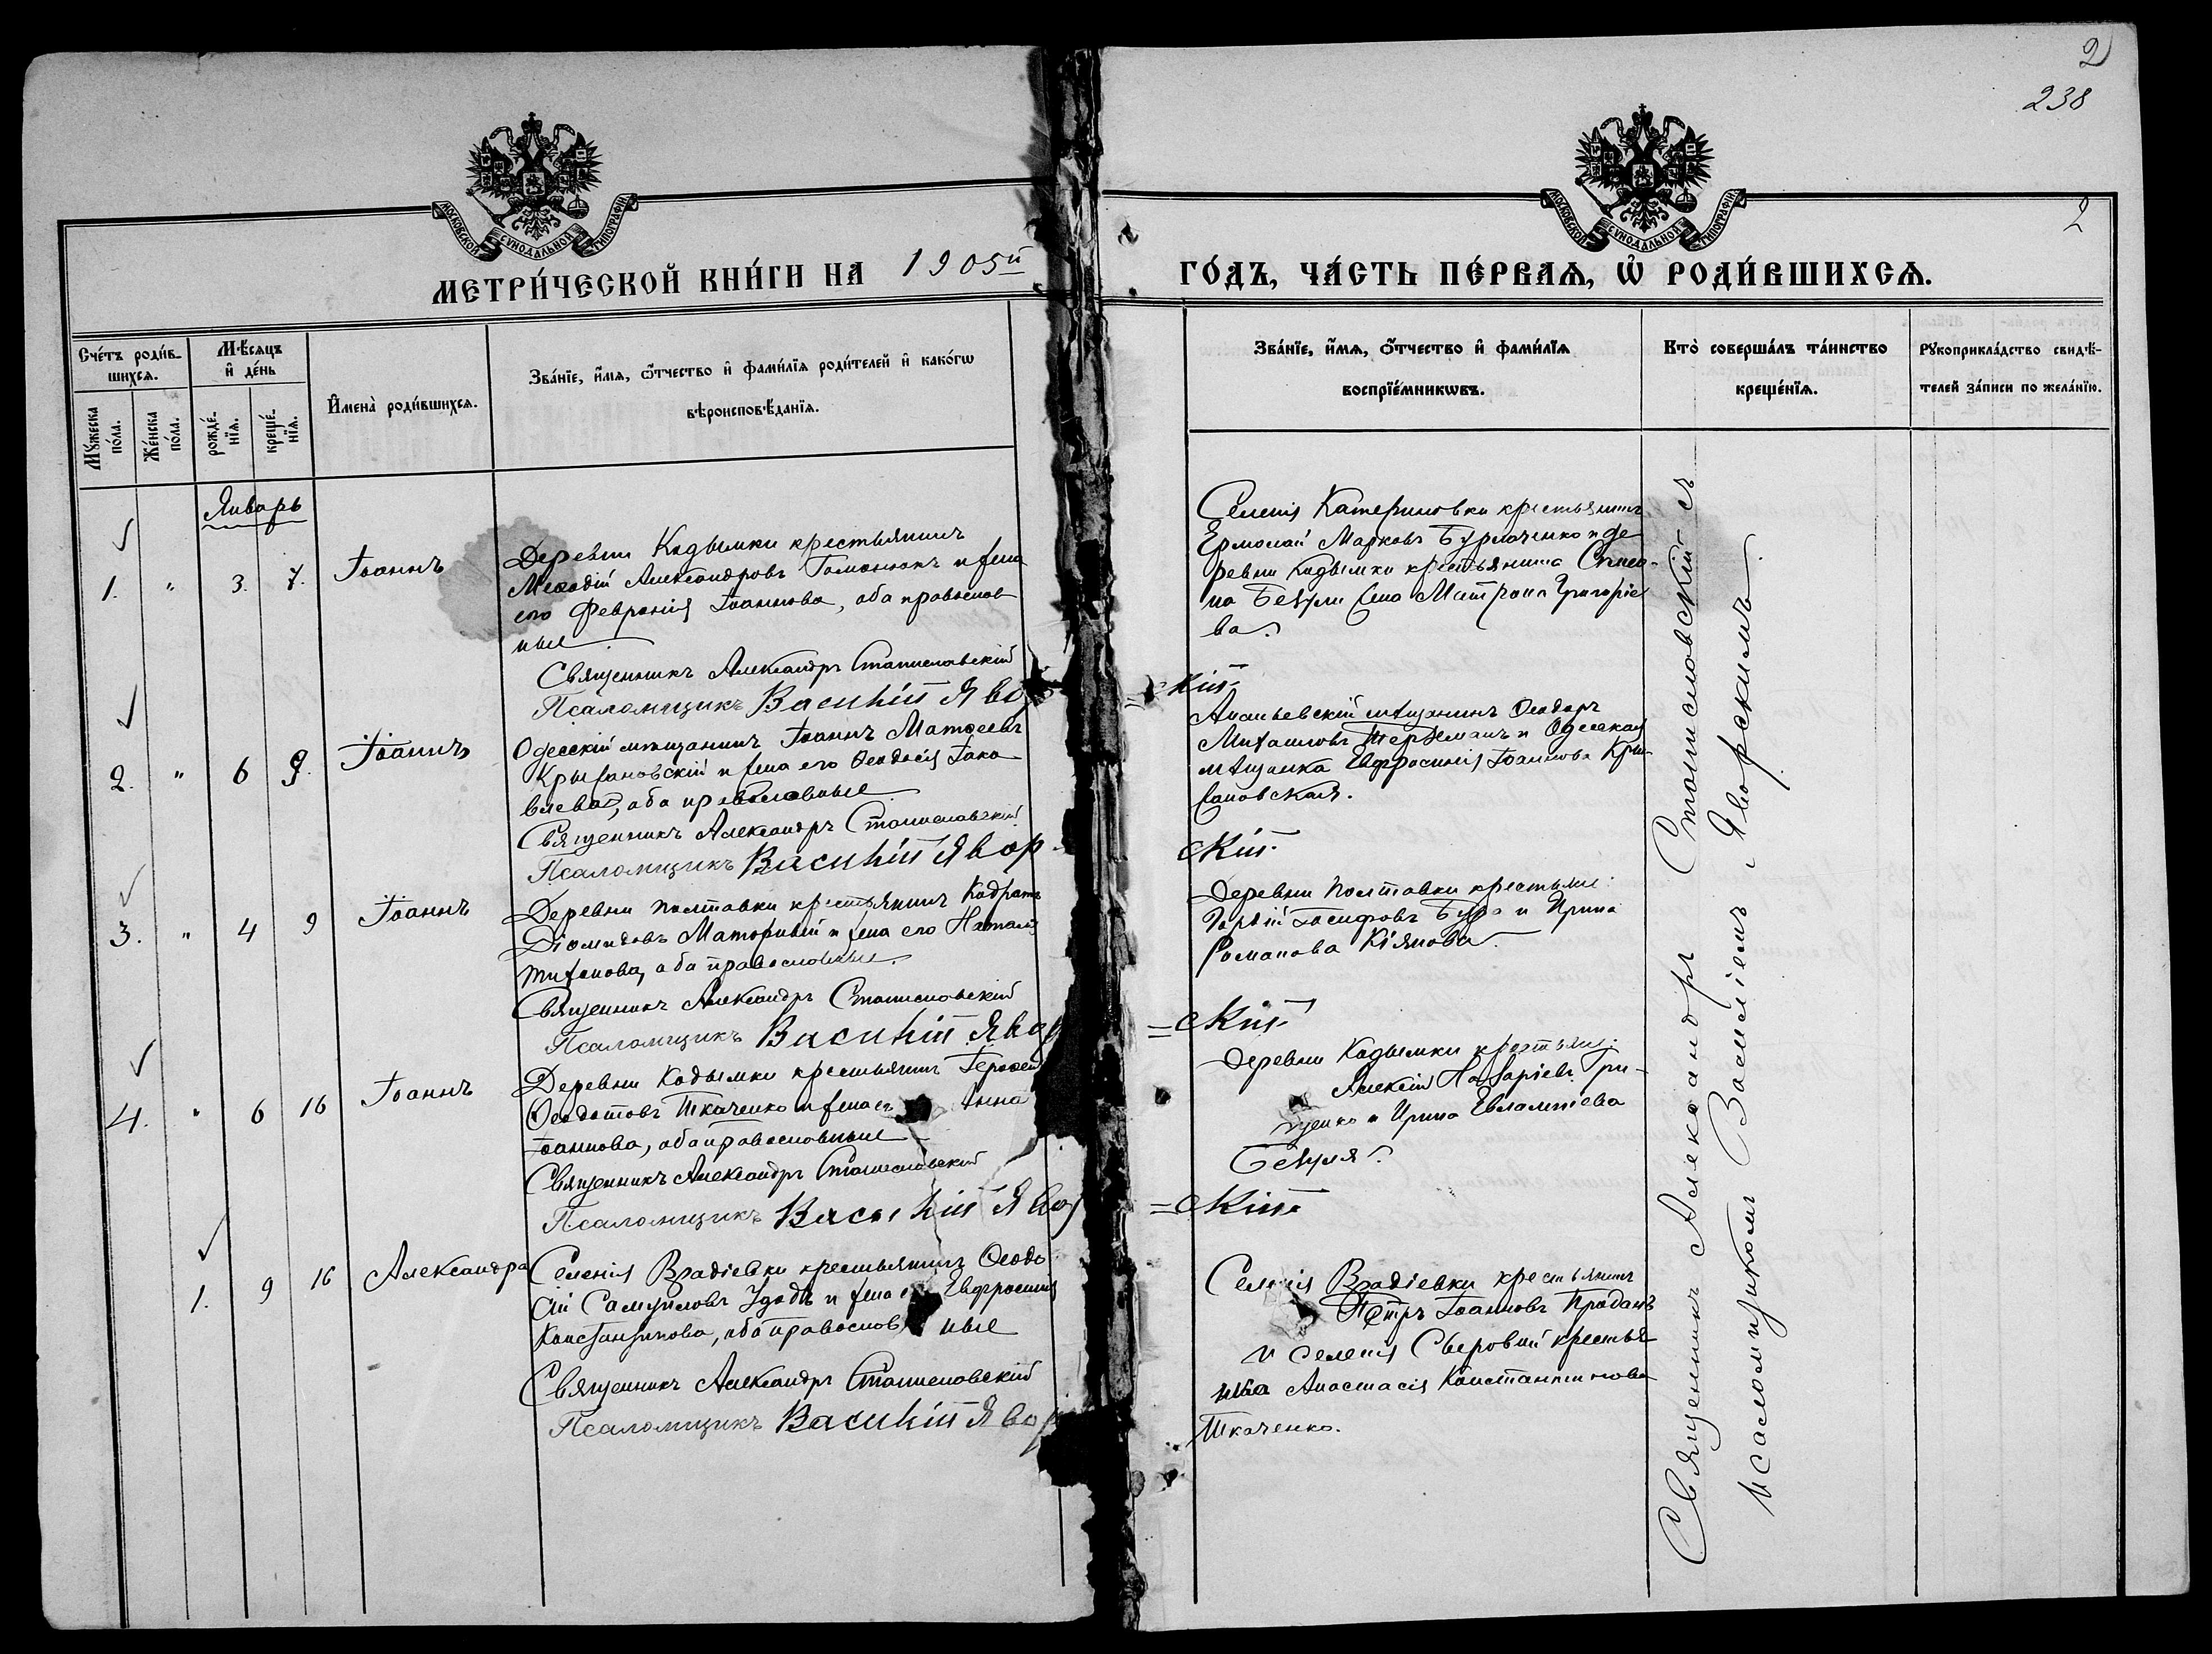 2
238
МОСКОВСКОЙ СѴНОДАЛЬНОЙ ТИПОГРАФІИ
МОСКОВСКОЙ СѴНОДАЛЬНОЙ ТИПОГРАФІИ
2
МЕТРИ́ЧЕСКОЙ КНИ́ГИ НА 1905й
ГО́ДЪ, ЧА́СТЬ ПЕ́РВАѦ, Ѡ҆ РОДИ́ВШИХСѦ.
Сче́тъ роди́в-
шихсѧ.
Мꙋ́жеска
по́ла.
Же́нска
по́ла.
Мѣ́сѧцъ
и҆ де́нь
рожде́-
нїѧ.
креще́-
нїѧ.
И҆мена̀ роди́вшихсѧ.
Зва́нїе, и҆́мѧ, ѻ҆́тчество и҆ фами́лїѧ роди́телей и҆ како́гѡ
вѣроисповѣ́данїѧ.
Зва́нїе, и҆́мѧ, ѻ҆́тчество и҆ фами́лїѧ
воспрїе́мникѡвъ.
Кто̀ соверша́лъ та́инство
креще́нїѧ.
Рꙋкоприкла́дство свидѣ́-
телей за́писи по жела́нїю.
Январь
1. " 3. 7. Іоаннъ
Деревни Кадымки крестьянинъ
Меѳодій Александровъ Гаманюкъ и жена
его Февронія Іоаннова, оба православ
ные
Священникъ Александръ Станиславскій
Псаломщикъ Василій Явор
Селенія Катериновки крестьянинъ
Ермолай Марковъ Бурлаченко и де
ревни Кадымки крестьянина
на Бевули жена Матрона Григоріе
ва.
скій
2. " 6 9. Іоаннъ
Одесскій мѣщанинъ Іоаннъ Матѳеевъ
Крыжановскій и жена его Ѳеодосія Іако
влева, оба православные
Священникъ Александръ Станиславскій
Псаломщикъ Василій Явор
Ананьевскій мѣщанинъ Ѳеодоръ
Михаиловъ и Одесская
мѣщанка Евфросинія Іоаннова Кры
жановская.
скій
3. " 4 9 Іоаннъ
Деревни Полтавки крестьянинъ Кодратъ
Діомидовъ Маторный и жена его Наталія
Тихонова, оба православные.
Священникъ Александръ Станиславскій
Псаломщикъ Василій Явор
Деревни Полтавки крестьяне:
Іосифовъ и Ирина
Романова Кіянова.
скій
4. " 6 16 Іоаннъ
Деревни Кадымки крестьянинъ Іероѳей
Ѳеодотовъ Ткаченко и жена ег Анна
Іоаннова, оба православные
Священникъ Александръ Станиславскій
Псаломщикъ Василій Явор
Деревни Кадымки крестьяне:
Алексій Назаріевъ Гри-
ценко и Ирина Евлампіева
Бевуля.
скій
1. 9 16 Александра
Селенія Врадіевки крестьянинъ Ѳеодо
сій Самуиловъ Удодъ и жена е Евфросинія
Константинова, оба православ ные
Священникъ Александръ Станиславскій
Псаломщикъ Василій Явор
Селенія Врадіевки крестьянинъ
Петръ Іоанновъ Проданъ
и селенія Сыровой крестья
нка Анастасія Константинова
Ткаченко.
Священникъ Александръ Станиславскій съ
псаломщикомъ Василіемъ Яворскимъ.